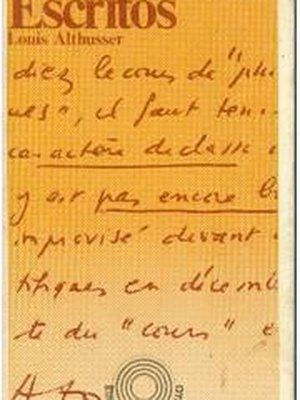 Escritos
Louis Althusser
diez le cours de "phi
ues", il faut ten
caractère de classe
y est pas encore
improvisé devant
tifiques en décemb
te du "cours" e